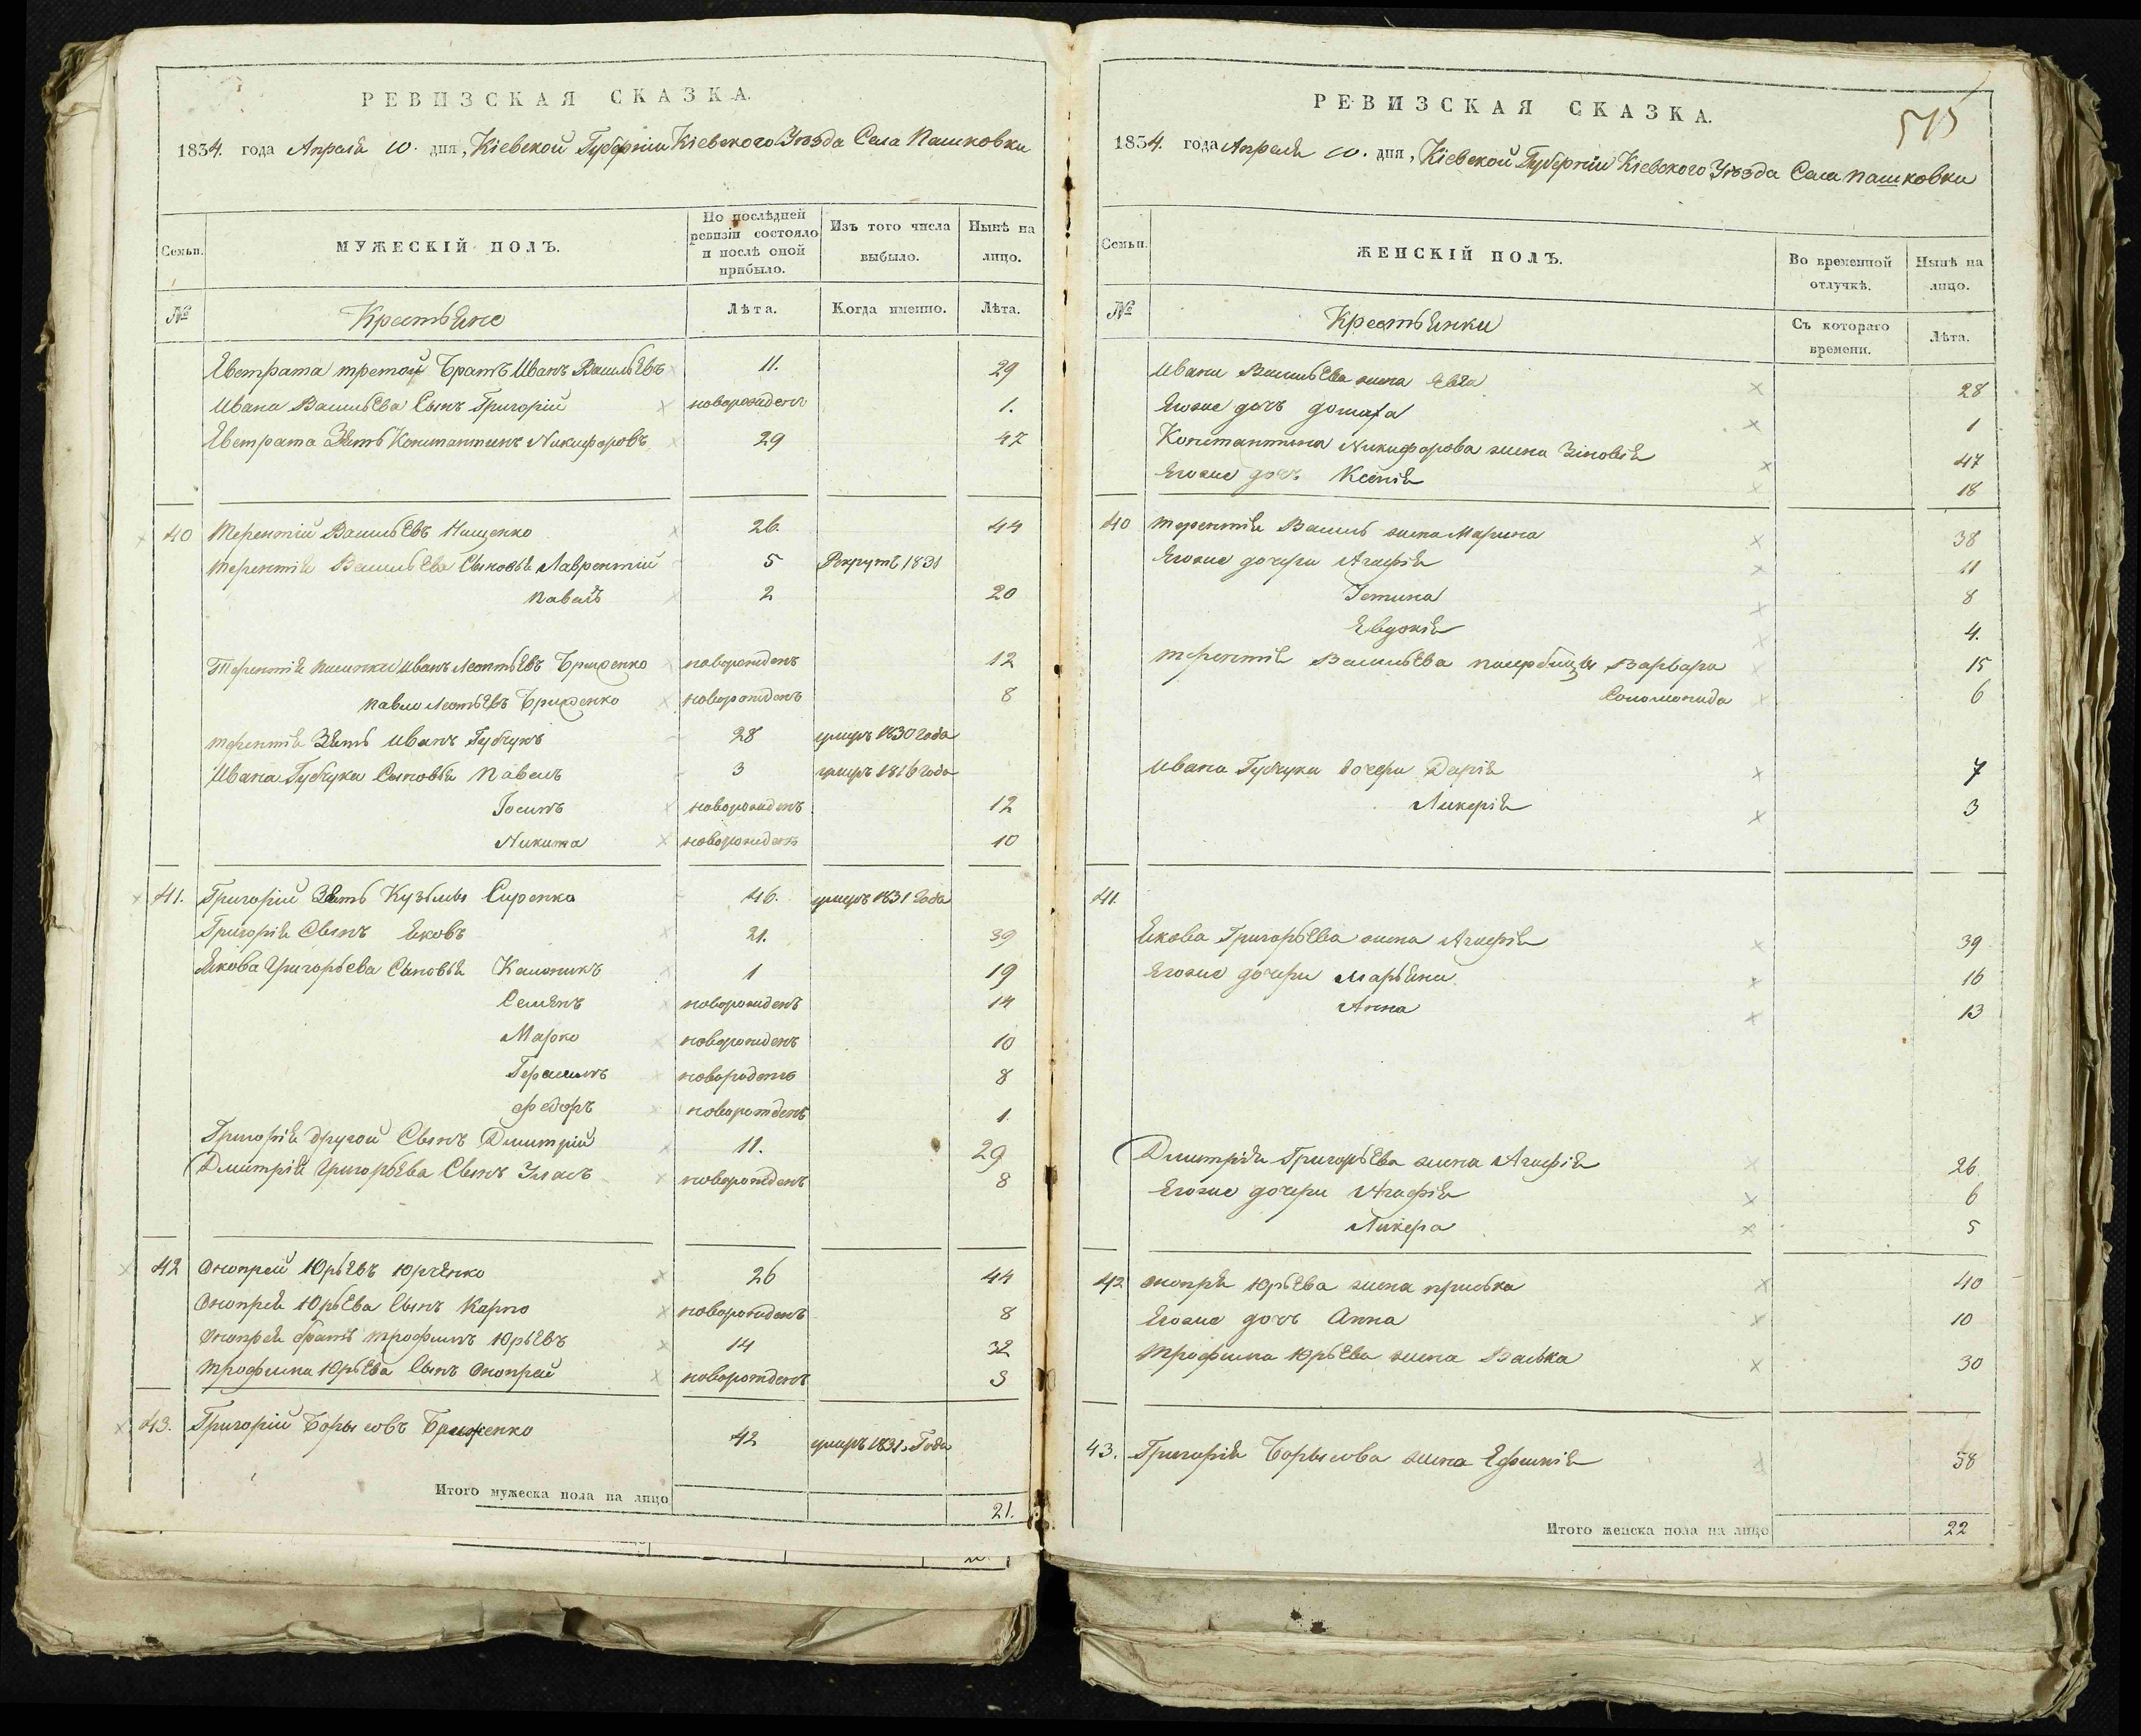 РЕВИЗСКАЯ СКАЗКА.
1834. года Апреля 10. дня, Кіевской Губерніи Кіевского Уѣзда Села Пашковки
Семьи.
МУЖЕСКІЙ ПОЛЪ.
По послѣдней ревизіи состояло и послѣ оной прибыло.
Изъ того числа выбыло.
Нынѣ на лицо.
№
Крестьяне
Лѣта.
Когда именно.
Лѣта.
Евстрата третой Братъ Иванъ Васильевъ 11. 29
Ивана Васильева Сынъ Григорій новорожденъ 1.
Евстрата Зять Константинъ Никифоровъ 29 47
40 Терентій Васильевъ Нищенко 26. 44
Терентія Васильева Сыновья Лаврентій 5 Рекрутъ 1831
Павелъ 2 20
Терентія Иванъ Леонтьевъ новорожденъ 12
Леонтьевъ новорожденъ 8
Терентія Зять Иванъ Губчукъ 28 умеръ 1830 года
Ивана Губчука Сыновья Павелъ 3 умеръ 1816 года
Іосипъ новорожденъ 12
Никита новорожденъ 10
41. Григорій Зять Кузьмы Сиренко 46. умеръ 1831 года
Григорія Сынъ Яковъ 21. 39
Якова Григорьева Сыновья Калоникъ 1 19
Семенъ новорожденъ 14
Марко новорожденъ 10
Герасимъ новорожденъ 8
Федоръ новорожденъ 1.
Григорія другой Сынъ Дмитрій 11. 29
Дмитрія Григорьева Сынъ Уласъ новорожденъ 8
42 Онопрей Юрьевъ Юрченко 26 44
Онопрея Юрьева Сынъ Карпо новорожденъ 8
Онопрея братъ Трофимъ Юрьевъ 14 32
Трофима Юрьева Сынъ Онопрей новорожденъ 3
43. Григорій Борысовъ 42 умеръ 1831. Года
Итого мужеска пола на лицо 21.
РЕВИЗСКАЯ СКАЗКА.
515
1834. года Апреля 10. дня, Кіевской Губерніи Кіевского Уѣзда Села Пашковки
Семьи.
ЖЕНСКІЙ ПОЛЪ.
Во временной отлучкѣ.
Нынѣ на лицо.
№
Крестьянки
Съ котораго времени.
Лѣта.
Ивана Васильева жена Евга 28
Егоже дочь Домаха 1
Константина Никифорова жена Зіновія 47
Егоже дочь Ксенія 18
40 Терентія Василь жена Марина 38
Егоже дочери Агафія 11
Устина 8
Евдокія 4.
Терентія Васильева Варвара 15
Соломонида 6
Ивана Губчука дочери Дарія 7
Ликерія 3
41.
Якова Григорьева жена Агафія 39
Егоже дочери Марьяна 16
Анна 13
Дмитрія Григорьева жена Агафія 26
Егоже дочери Агафія 6
Ликера 5
42 Онопрія Юрьева жена Приська 40
Егоже дочь Анна 10
Трофима Юрьева жена Васька 30
43. Григорія Борысова жена Ефимія 58
Итого женска пола на лицо 22